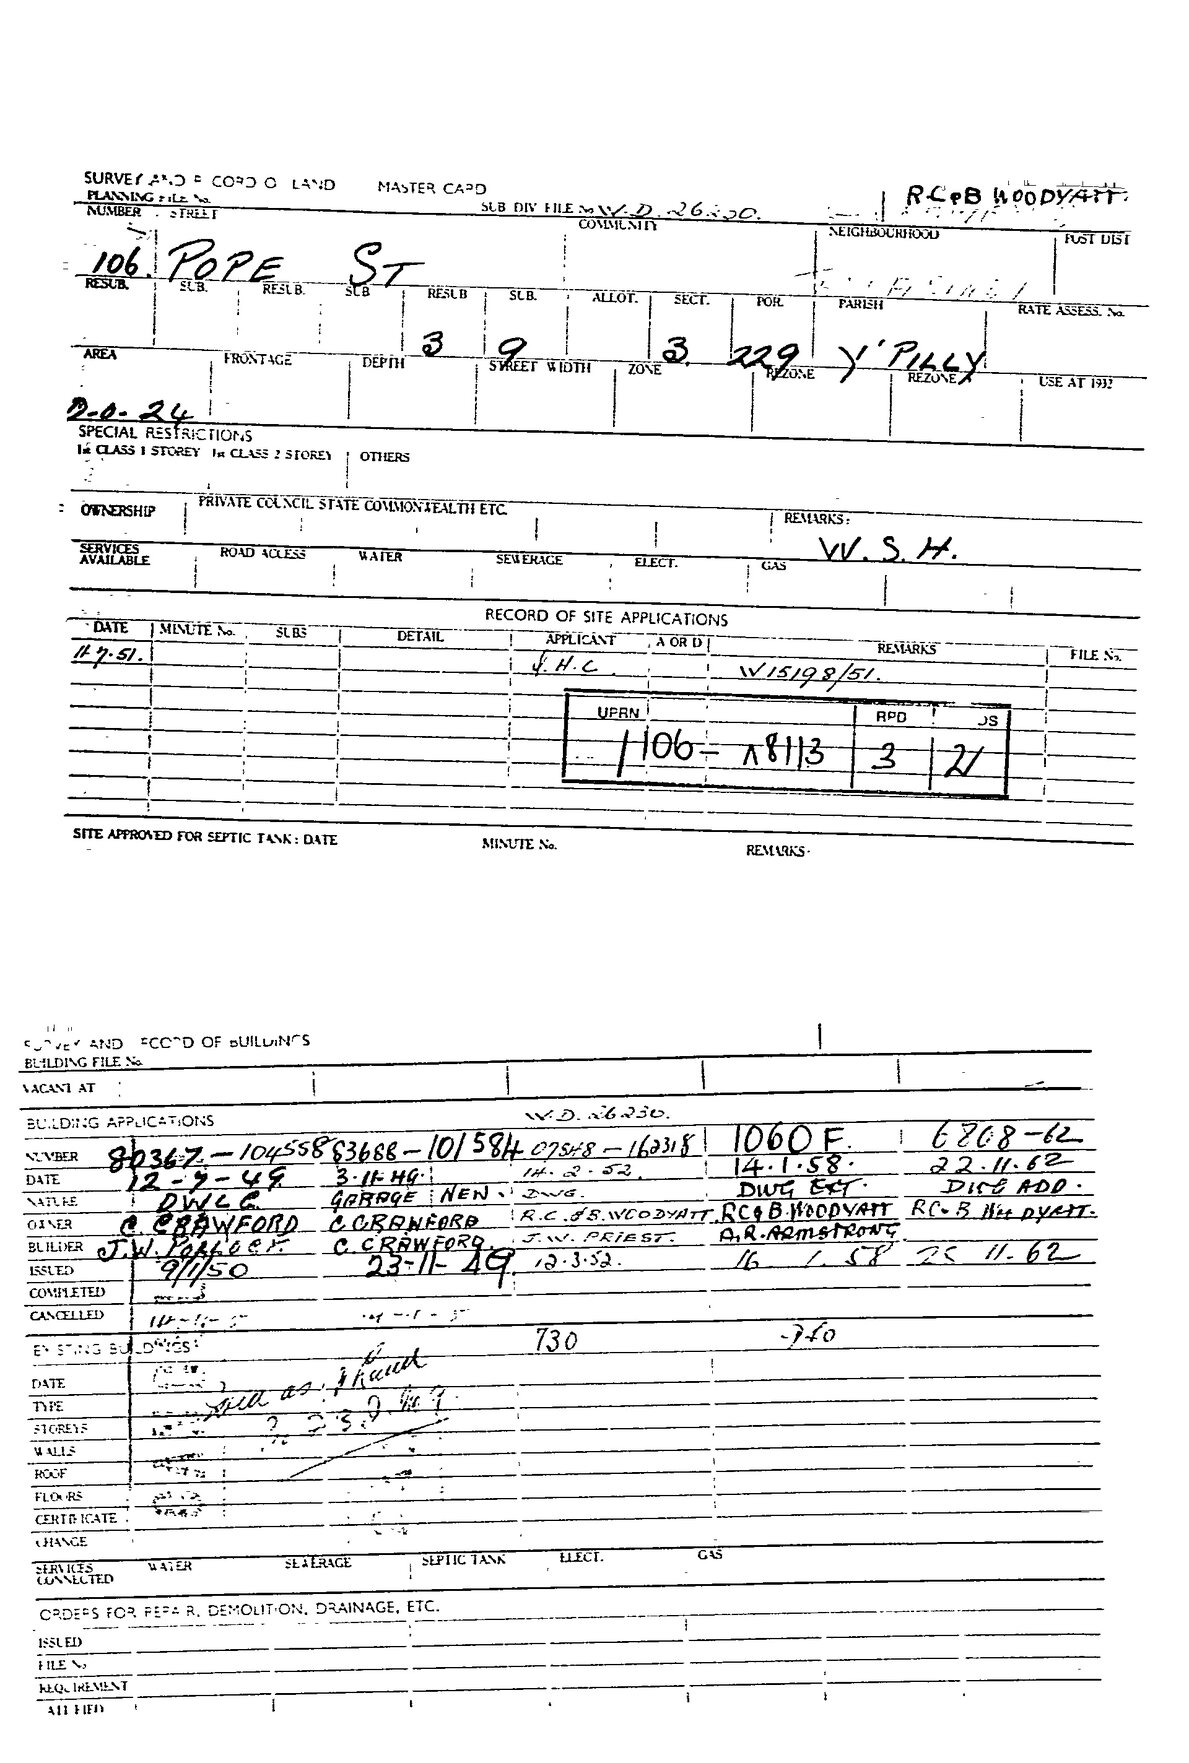 SURVEY AND RECORD O LAND MASTER CARD
R.C & B WOODYATT.
PLANNING FILE No. SUB DIV FILE No W.D. 26230.
NUMBER STREET COMMUNITY NEIGHBOURHOOD POST DIST
106. POPE ST
RESUB. SUB. RESUB. SUB RESUB SUB. ALLOT. SECT. POR. PARISH RATE ASSESS. No.
3 9 3. 229 Y'PILLY
AREA FRONTAGE DEPTH STREET WIDTH ZONE REZONE REZONE USE AT 1932
0-0-24
SPECIAL RESTRICTIONS
1st CLASS 1 STOREY 1st CLASS 2 STOREY OTHERS
OWNERSHIP PRIVATE COUNCIL STATE COMMONWEALTH ETC. REMARKS:
W.S.H.
SERVICES AVAILABLE ROAD ACCESS WATER SEWERAGE ELECT. GAS
RECORD OF SITE APPLICATIONS
DATE MINUTE No. SUBS DETAIL APPLICANT A OR D REMARKS FILE No.
11.7.51. J.H.C W15198/51.
UPRN RPD DS
106- 8113 3 21
SITE APPROVED FOR SEPTIC TANK: DATE MINUTE No. REMARKS.
SURVEY AND RECORD OF BUILDINGS
BUILDING FILE No.
VACANT AT
BUILDING APPLICATIONS W.D. 26230.
NUMBER 80367.-104558 83688-101584 07548-162318 1060F. 6808-62
DATE 12-7-49 3.11.49. 14.2.52. 14.1.58. 22.11.62
NATURE DWLG GARAGE NEW. DWG. DWG EXT. DWG ADD.
OWNER C. CRAWFORD C CRAWFORD R.C. & B. WOODYATT RC & B. WOODYATT RC & B WOODYATT.
BUILDER J.W. PORLOCK. C. CRAWFORD. J.W. PRIEST. A.R. ARMSTRONG
ISSUED 9/1/50 23-11-49. 12.3.52. 16 1.58 11.62
COMPLETED
CANCELLED
EXISTING BUILDINGS 730
DATE
TYPE
STOREYS
WALLS
ROOF
FLOORS
CERTIFICATE
CHANGE
SERVICES CONNECTED WATER SEWERAGE SEPTIC TANK ELECT. GAS
ORDERS FOR REPAIR, DEMOLITION, DRAINAGE, ETC.
ISSUED
FILE No
REQUIREMENT